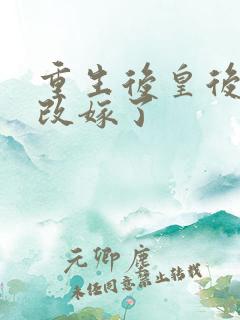 重生後皇後
改嫁了
元卿塵
未经同意禁止转载